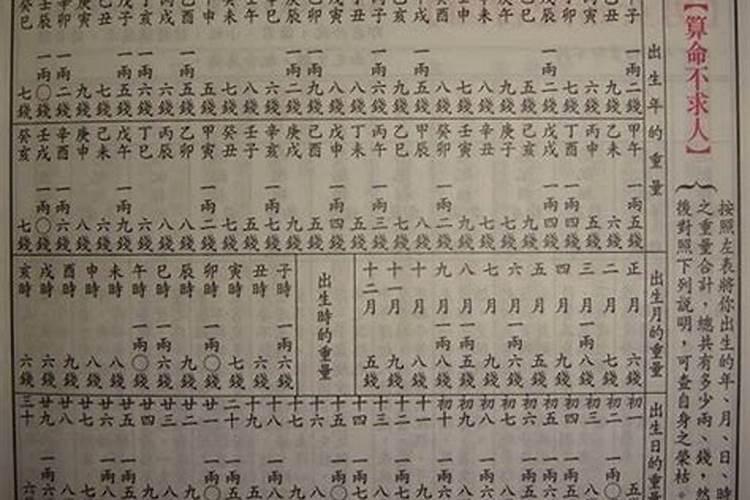 【算命不求人】
按照左表將你出生的年、月、日、時
之重量合計，總共有多少兩、錢，
後對照下列說明，可查自身之榮枯
出生年的重量
子 一兩二錢
丑 九錢
寅 六錢
卯 七錢
辰 一兩二錢
巳 五錢
午 九錢
未 八錢
申 七錢
酉 八錢
戌 一兩五錢
乙亥 九錢
丙子 一兩六錢
丁丑 八錢
戊寅 八錢
己卯 一兩九錢
庚辰 一兩二錢
辛巳 六錢
壬午 八錢
癸未 七錢
甲申 五錢
乙酉 一兩五錢
丙戌 六錢
丁亥 一兩六錢
戊子 一兩五錢
己丑 七錢
庚寅 九錢
辛卯 一兩二錢
壬辰 一兩〇錢
癸巳 七錢
甲午 一兩五錢
乙未 六錢
丙申 五錢
丁酉 一兩四錢
戊戌 一兩四錢
己亥 九錢
庚子 七錢
辛丑 七錢
壬寅 九錢
癸卯 一兩二錢
甲辰 八錢
乙巳 七錢
丙午 一兩三錢
丁未 五錢
戊申 一兩四錢
己酉 五錢
庚戌 九錢
辛亥 一兩七錢
壬子 五錢
癸丑 七錢
甲寅 一兩二錢
乙卯 八錢
丙辰 八錢
丁巳 六錢
戊午 一兩九錢
己未 六錢
庚申 八錢
辛酉 一兩六錢
壬戌 一兩〇錢
癸亥 七錢
出生月的重量
正月 六錢
二月 七錢
三月 一兩八錢
四月 九錢
五月 五錢
六月 一兩六錢
七月 九錢
八月 一兩五錢
九月 一兩八錢
十月 八錢
十一月 九錢
十二月 五錢
出生時的重量
子時 一兩六錢
丑時 六錢
寅時 七錢
卯時 一兩〇錢
辰時 九錢
巳時 一兩六錢
午時 一兩〇錢
未時 八錢
申時 八錢
酉時 九錢
戌時 六錢
亥時 六錢
出生日的重
初一 五
初二 一兩〇
初三 八
初四 一兩五
初五 一兩六
初六 一兩五
初七 八
初八 一兩六
初九 八
初十 一兩六
十一 九
十二 一兩七
十三 八
十四 一兩七
十五 一兩〇
十六 八
十七 九
十八 一兩八
十九 五
二十 一兩五
廿一 一兩〇
廿二 九
廿三 八
廿四 九
廿五 一兩五
廿六 一兩八
廿七 七
廿八 八
廿九 一兩六
三十 六